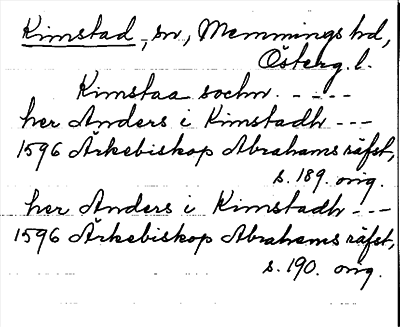 Kimstad, sn, Memmings hd,
Österg. l.
Kimstaa sochn. - - - -
her Anders i Kimstadh - - -
1596 Ärkebiskop Abrahams räfst,
s. 189. orig.
her Anders i Kimstadh - - -
1596 Ärkebiskop Abrahams räfst,
s. 190. orig.